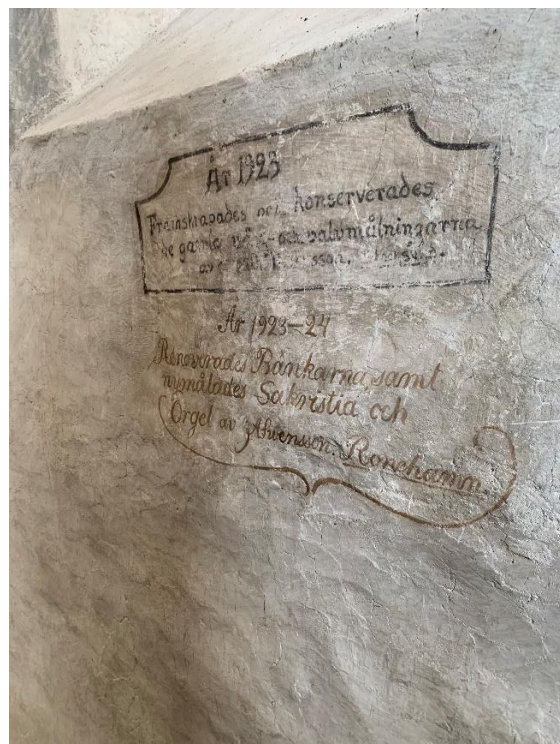 År 1923
Framskrapades och konserverades
de gamla vägg- och valvmålningarna
av
År 1923-24
Renoverades Bänkarna samt
nymålades Sakristia och
Orgel av Ronehamn.